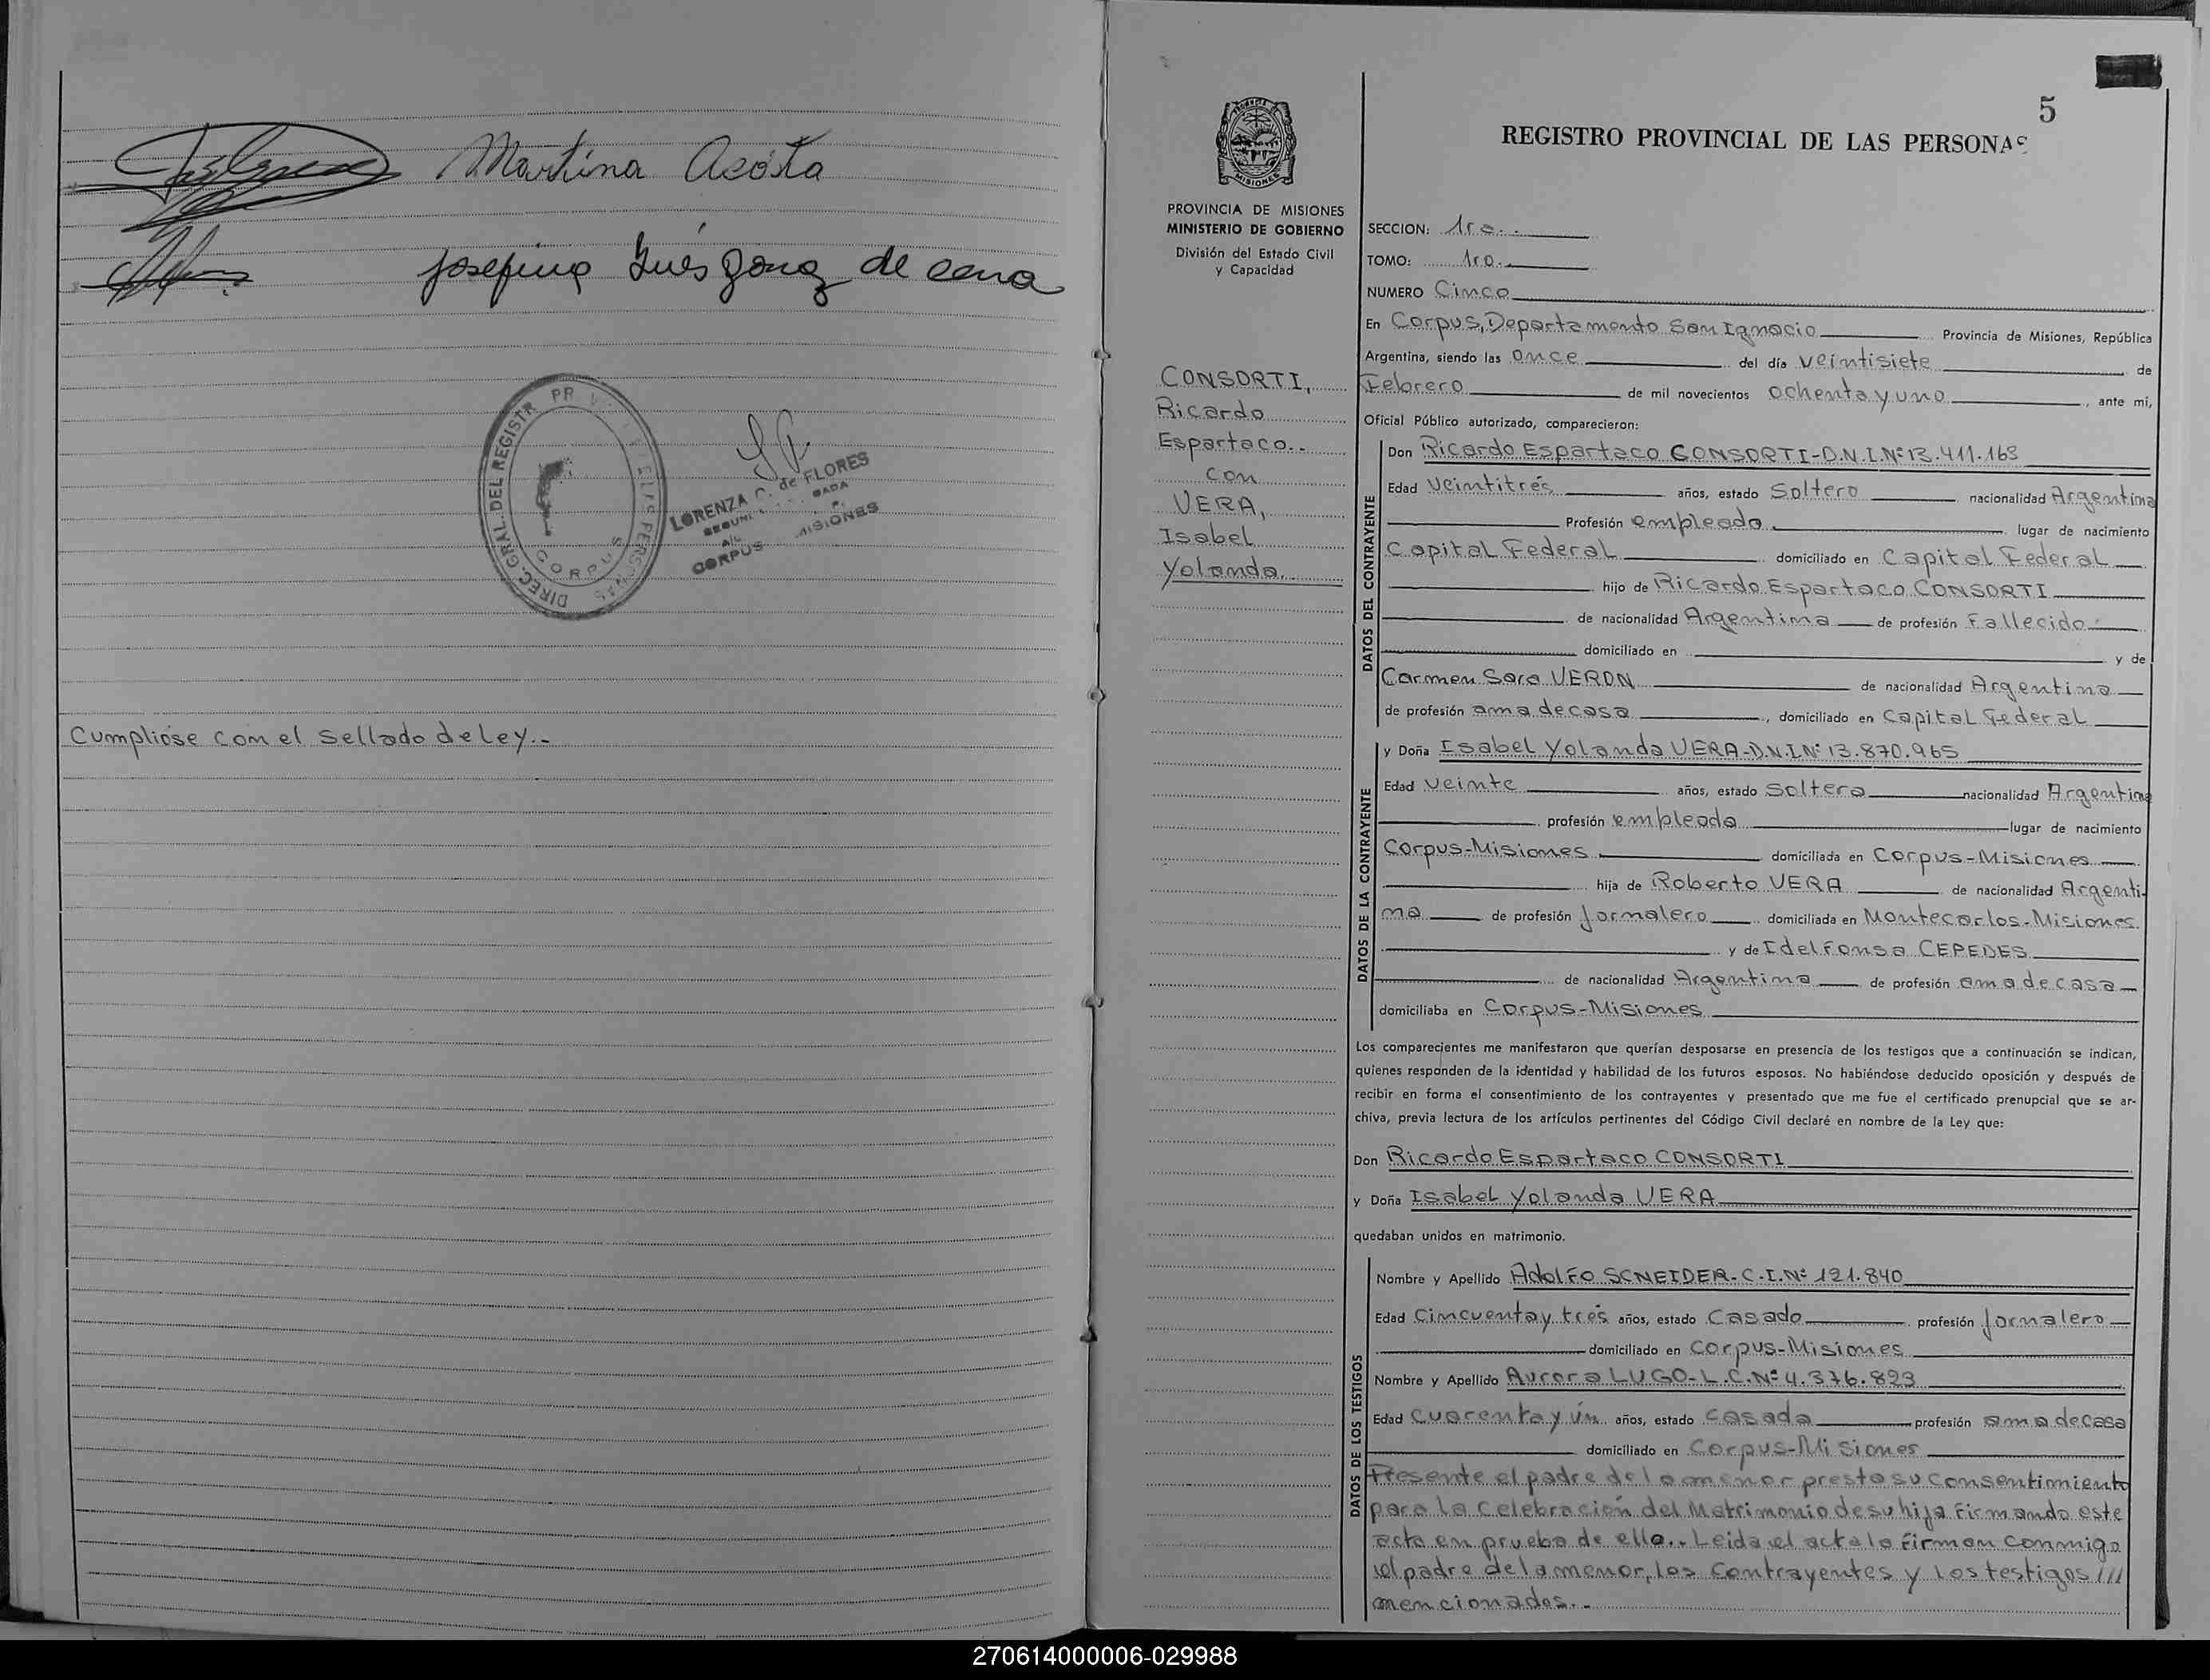 Martina Acosta
Josefina Inés Gonz de cena
DIREC. GRAL. DEL REGISTR PR
CORPUS
LORENZA de FLORES
CORPUS MISIONES
Cumplióse con el sellado de ley.-
5
REGISTRO PROVINCIAL DE LAS PERSONAS
PROVINCIA DE MISIONES
MINISTERIO DE GOBIERNO
División del Estado Civil
y Capacidad
CONSORTI,
Ricardo
Espartaco..
con
VERA,
Isabel
Yolanda.
SECCION: 1ra..
TOMO: 1ro.
NUMERO Cinco
En Corpus, Departamento San Ignacio Provincia de Misiones, República
Argentina, siendo las once del día veintisiete de
Febrero de mil novecientos ochenta y uno, ante mi,
Oficial Público autorizado, comparecieron:
DATOS DEL CONTRAYENTE
Don Ricardo Espartaco CONSORTI-D.N.I.Nº 13.411.163
Edad veintitrés años, estado Soltero nacionalidad Argentina
Profesión empleado. lugar de nacimiento
Capital Federal domiciliado en Capital Federal
hijo de Ricardo Espartaco CONSORTI
de nacionalidad Argentina de profesión Fallecido
domiciliado en y de
Carmen Sara VERON de nacionalidad Argentina
de profesión ama de casa, domiciliado en Capital Federal
DATOS DE LA CONTRAYENTE
y Doña Isabel Yolanda VERA-D.N.I.Nº 13.870.965
Edad veinte años, estado Soltera nacionalidad Argentina
profesión empleada lugar de nacimiento
Corpus-Misiones domiciliada en Corpus-Misiones
hija de Roberto VERA de nacionalidad Argenti-
na de profesión Jornalero domiciliada en Montecarlos-Misiones.
y de Idelfonsa CEPEDES
de nacionalidad Argentina de profesión ama de casa
domiciliaba en Corpus-Misiones
Los comparecientes me manifestaron que querían desposarse en presencia de los testigos que a continuación se indican,
quienes responden de la identidad y habilidad de los futuros esposos. No habiéndose deducido oposición y después de
recibir en forma el consentimiento de los contrayentes y presentado que me fue el certificado prenupcial que se ar-
chiva, previa lectura de los artículos pertinentes del Código Civil declaré en nombre de la Ley que:
Don Ricardo Espartaco CONSORTI
y Doña Isabel Yolanda VERA
quedaban unidos en matrimonio.
DATOS DE LOS TESTIGOS
Nombre y Apellido Adolfo SCNEIDER-C.I.Nº 121.840
Edad Cincuenta y tres años, estado Casado profesión Jornalero
domiciliado en Corpus-Misiones
Nombre y Apellido Aurora LUGO-L.C.Nº 4.376.823
Edad Cuarenta y ún años, estado casada profesión ama de casa
domiciliado en Corpus-Misiones
Presente el padre de la menor presta su consentimiento
para la Celebración del Matrimonio de su hija firmando este
acta en prueba de ello.. Leida el acta la firman conmigo
el padre de la menor, los contrayentes y los testigos ///
mencionados.-
270614000006-029988